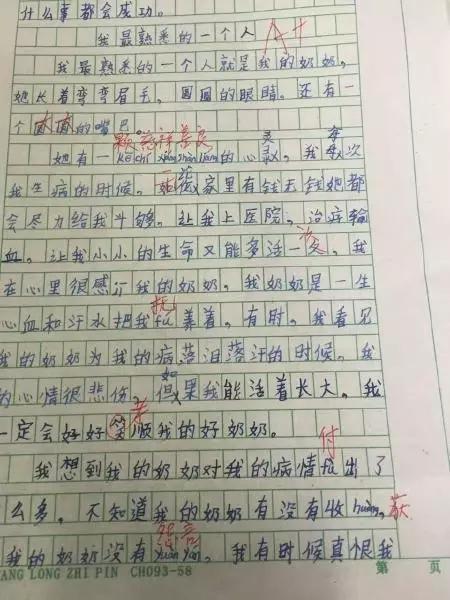 什么事都会成功。
我最熟悉的一个人 A+
我最熟悉的一个人就是我的奶奶,
她长着弯弯眉毛,圆圆的眼睛。还有一
个 大大的嘴巴。
颗慈祥善良 灵 每
她有一 kē cí xiáng shàn liáng 的心 ,我每次
我生病的时候。 论家里有钱无钱她都
会尽力给我斗够。让我上医院,治病输
血。让我小小的生命又能多活一次。我
在心里很感 我的奶奶。我奶奶是一生
抚
心血和汗水把我fǔ养着。有时。我看见
我的奶奶为我的病落泪落汗的时候。我
如
的心情很悲伤,但果我能活着长大。我
孝
一定会好好 顺我的好奶奶。
付
我想到我的奶奶对我的病情fù出了
么多。不知道我的奶奶有没有收huò,获
怨言
我的奶奶没有yuàn yán。我有时候真恨我
ANG LONG ZHI PIN CH093-58 第 页